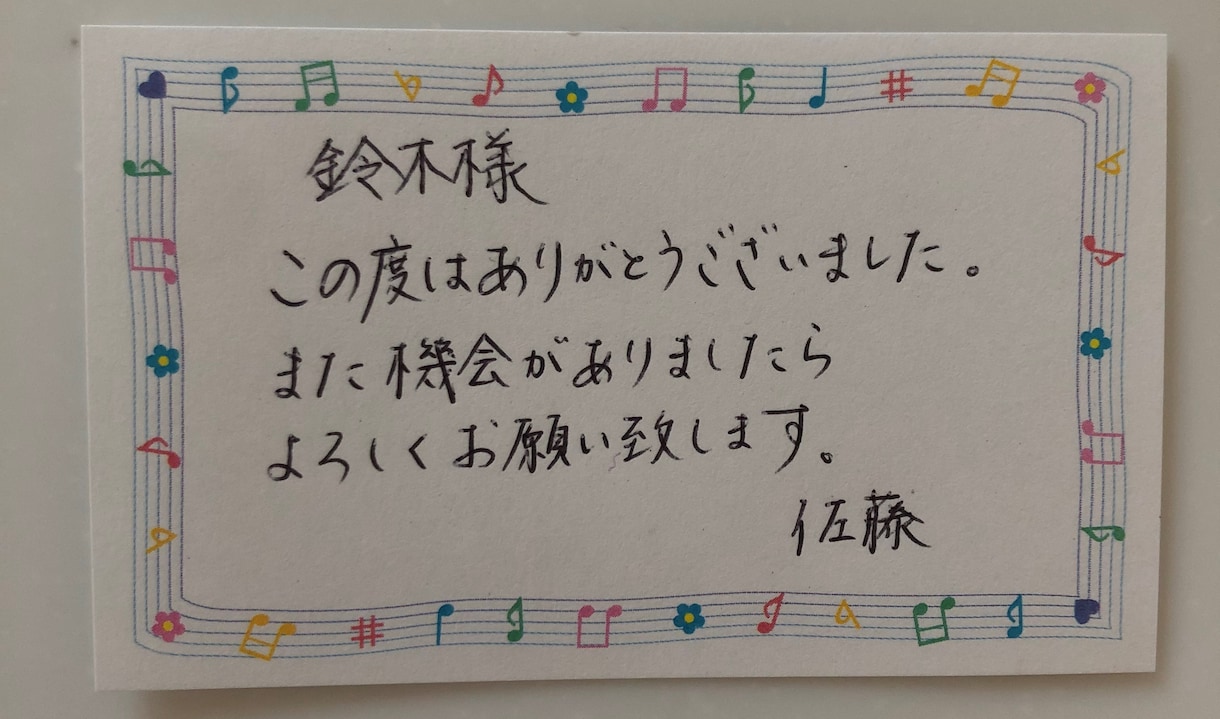 鈴木様
この度はありがとうございました。
また機会がありましたら
よろしくお願い致します。
佐藤